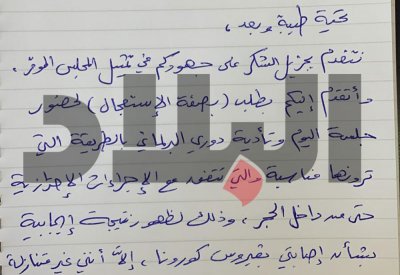 تحية طيبة وبعد ،
نتقدم بجزيل الشكر على جهودكم في تمثيل المجلس الموقر ،
وأتقدم إليكم بطلب (بصفة الإستعجال) لحضور
جلسة اليوم وتأدية دوري البرلماني بالطريقة التي
ترونها مناسبة والتي تتفق مع الإجراءات الإحترازية
حتى من داخل الحجر ، وذلك لظهور نتيجة إيجابية
بشأن إصابتي بفيروس كورونا ، إلا أنني غير متنازلة
البلاد